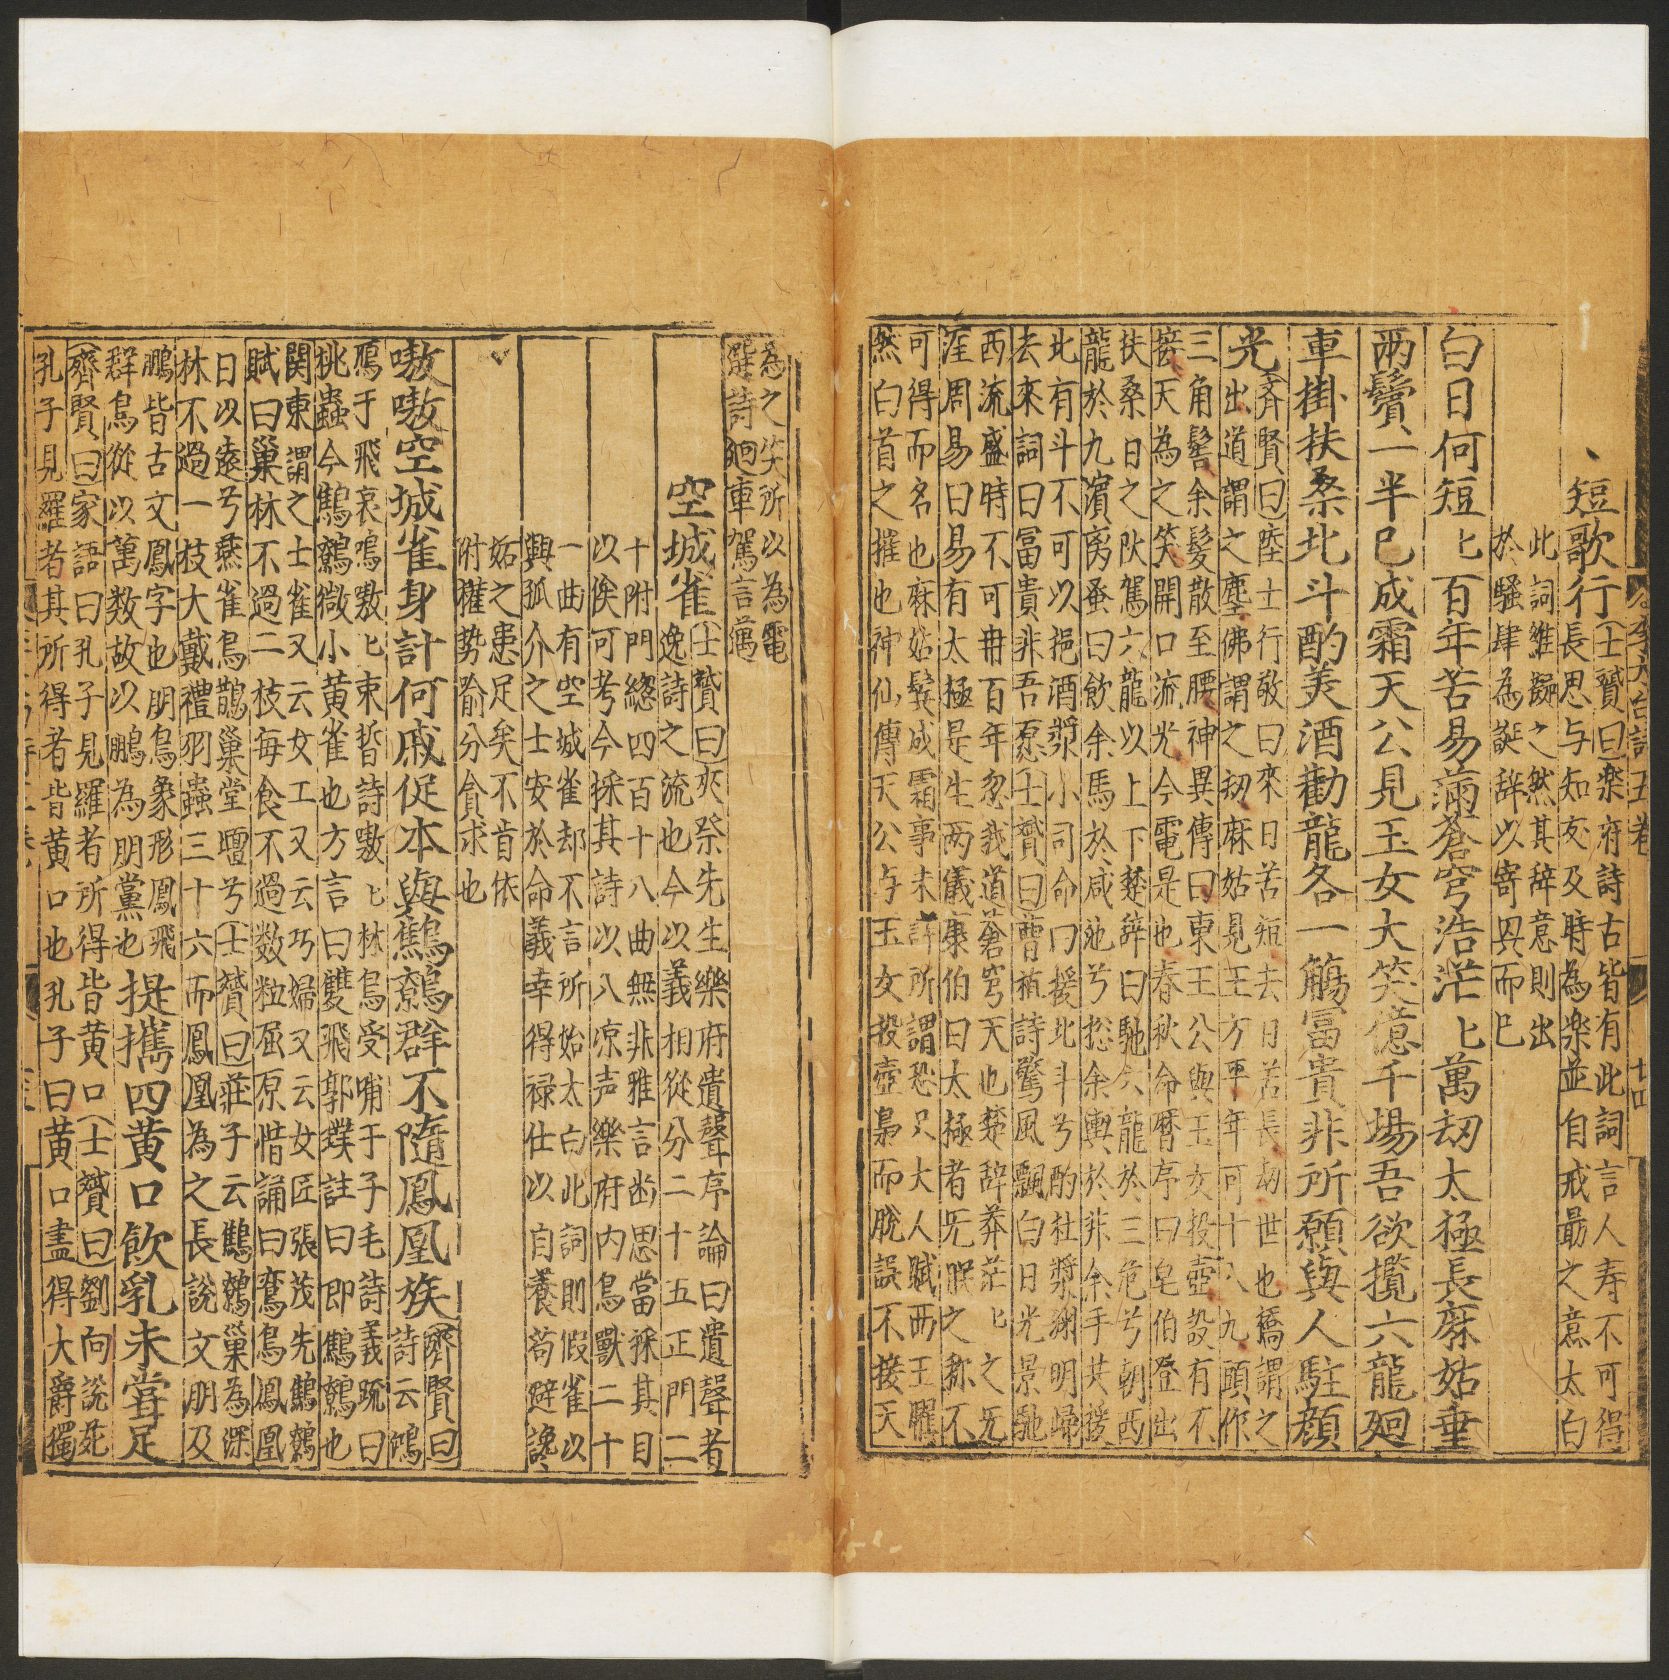 短歌行士贇曰楽府詩古皆有此詞言人寿不可得
長思与知友及時為楽並自戒最之意太白
此詞雖擬之然其辞意則出
於騷肆為誕辞以寄興而已
白日何短匕百年苦易蒲蒼穹浩茫匕萬刼太極長麻姑垂
兩鬢一半已成霜天公見玉女大笑億千場吾欲攬六龍廻
車掛扶桑北斗酌美酒勸龍各一觴冨貴非所願與人駐顔
光
齊賢曰陸士行敬曰來日苦短去日苦長刼世也橋謂之
出道謂之塵佛謂之刼麻姑見王方平年可十八九頭作
三角髻余髮散至腰神異傳曰東王公與玉女投壺設有不
接天為之笑開口流光今電是也春秋命暦序曰皂伯登出
扶桑日之阦駕六龍以上下楚辞曰馳六龍於三危兮朝西
龍於九濱离蚤曰飲余馬於咸池兮捴余轡於非余手其援
北有斗不可以挹酒漿小司命曰援北斗兮酌杜漿渊明歸
去來詞曰冨貴非吾愿士贇曰曹植詩驚風飄白日光景馳
西流盛時不可再百年忽我道蒼穹天也楚辞莽茫匕之旡
涯周易曰易有太極是生两儀康伯曰太極者旡眠之称不
可得而名也麻姑鬢成霜事未詳所謂恐只大人賦西王𣍝
然白首之摧也神仙傳天公与玉女投壺梟而脫誤不接天
為之笑所以為電
選詩廻車駕言邁
空城雀士贇曰夾漈先生樂府遺聲序論曰遺聲者
逸詩之流也今以義相從分二十五正門二
十附門緫四百十八曲無非雅言幽思當採其目
以俟可考今採其詩以入凉声樂府内鳥獸二十
一曲有空城雀却不言所始太白此詞則假雀以
興孤介之士安於命義幸得禄仕以自養苟避讒
妬之患足矣不肯依
附權勢踰分貪求也
嗷嗷空城雀身計何戚促本與鷦鷯群不隨鳳凰族
齊賢曰
詩云鴻
鴈于飛哀鳴嗷匕束晢詩嗷匕林烏受哺于子毛詩義疏曰
桃蟲今鷦鷯微小黃雀也方言曰雙飛郭璞註曰即鷦鷯也
関東謂之士雀又云女工又云巧婦又云女匠張茂先鷦鷯
賦曰巢林不過二枝每食不過数粒屈原惜誦曰鸞鳥鳯凰
日以遠兮燕雀烏鵲巢堂壇兮士贇曰莊子云鷦鷯巢為深
林不過一枝大戴禮羽蟲三十六而鳳凰為之長說文朋及
鵬皆古文鳳字也朋鳥象形鳳飛
群鳥從以萬数故以鵬為明黨也
提攜四黄口飲乳未甞足
齊賢曰家語曰孔子見羅者所得皆黄口士贇曰劉向說苑
孔子見羅者其所得者皆黄口也孔子曰黄口盡得大爵獨